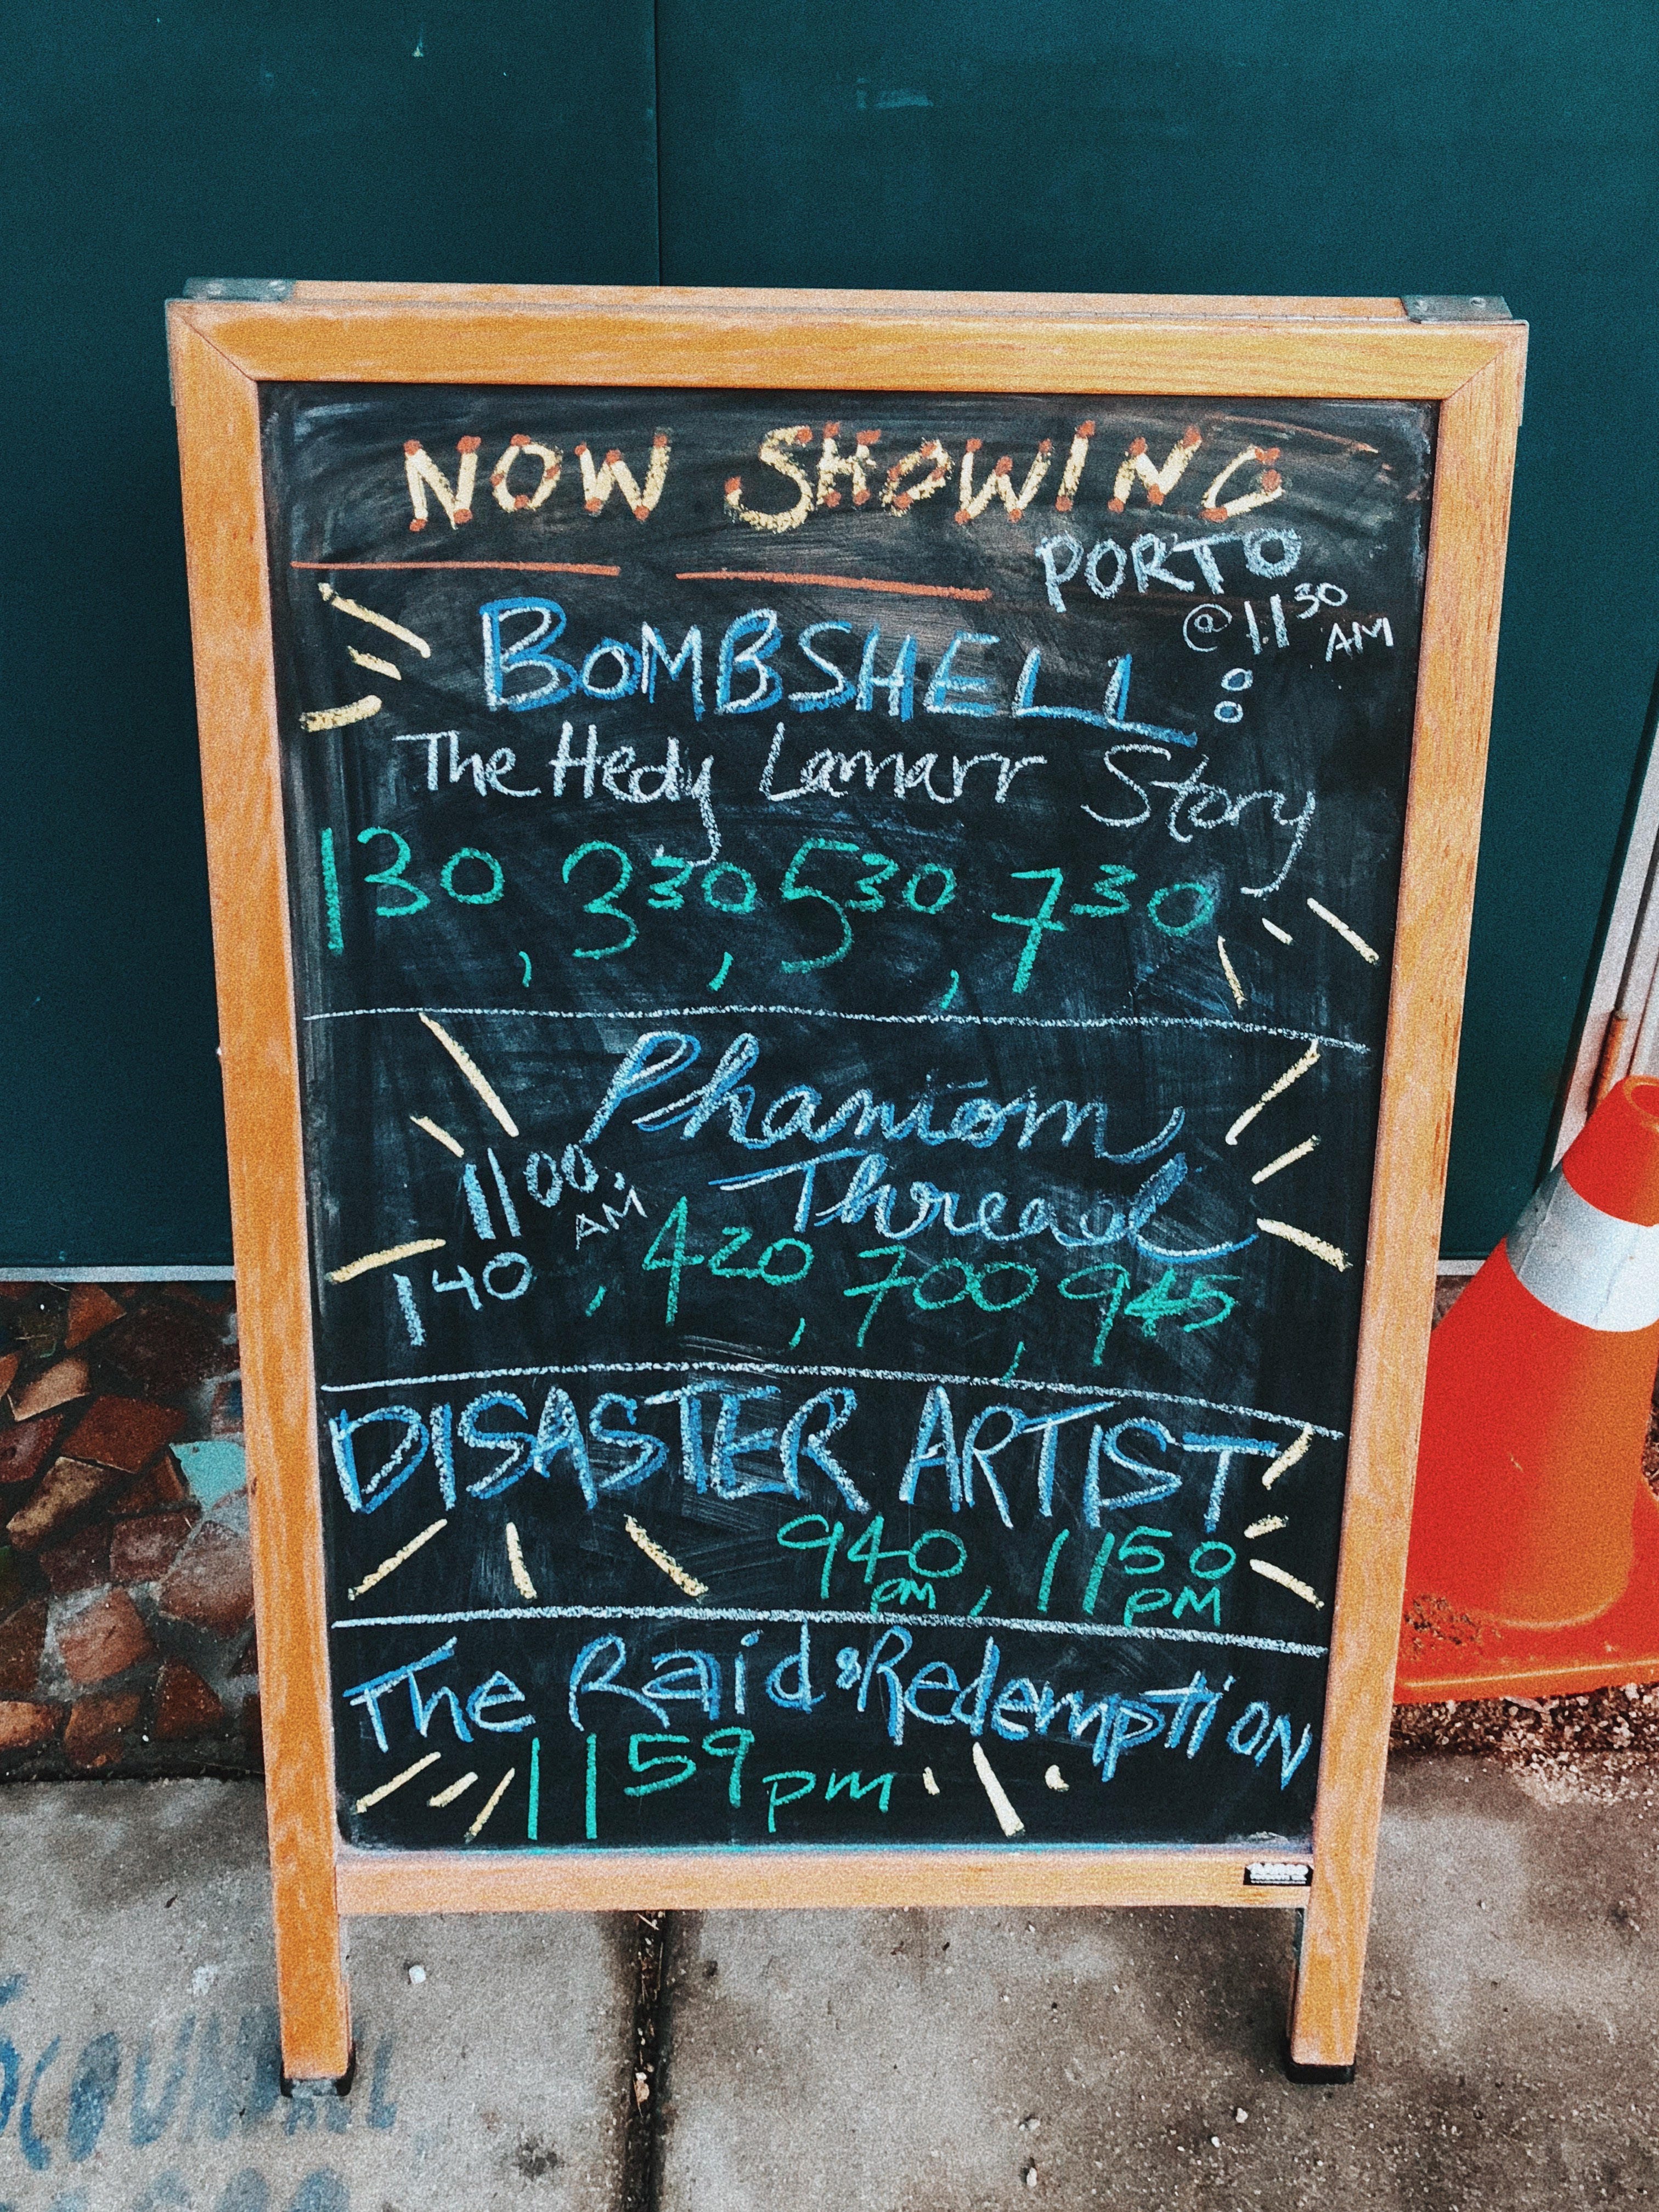 NOW SHOWING
PORTO
@ 11 30 AM
BOMBSHELL :
The Hedy Lamarr Story
130, 330, 530, 730
Phantom
Thread
11 00 AM
140, 420, 700, 945
DISASTER ARTIST
940 PM, 1150 PM
The Raid: Redemption
1159 pm